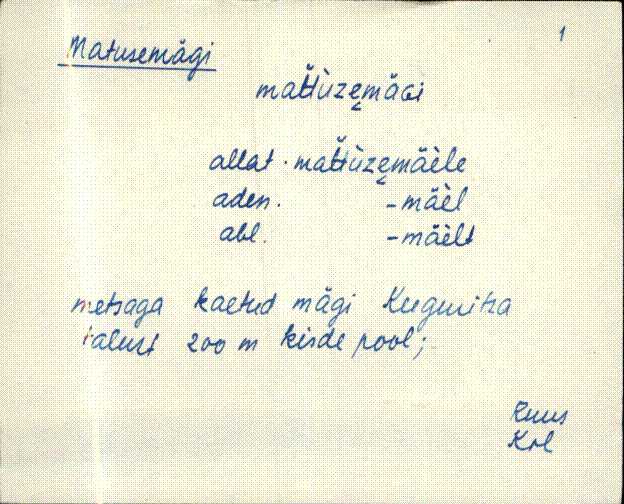 1
Matusemägi
mat̆t̆ùzemäGi
allat. mat̆t̆ùzemäèle
aden. -mäèl
abl. -mäèlt
metsaga kaetud mägi
talust 200 m kirde pool;
Ruus
Krl